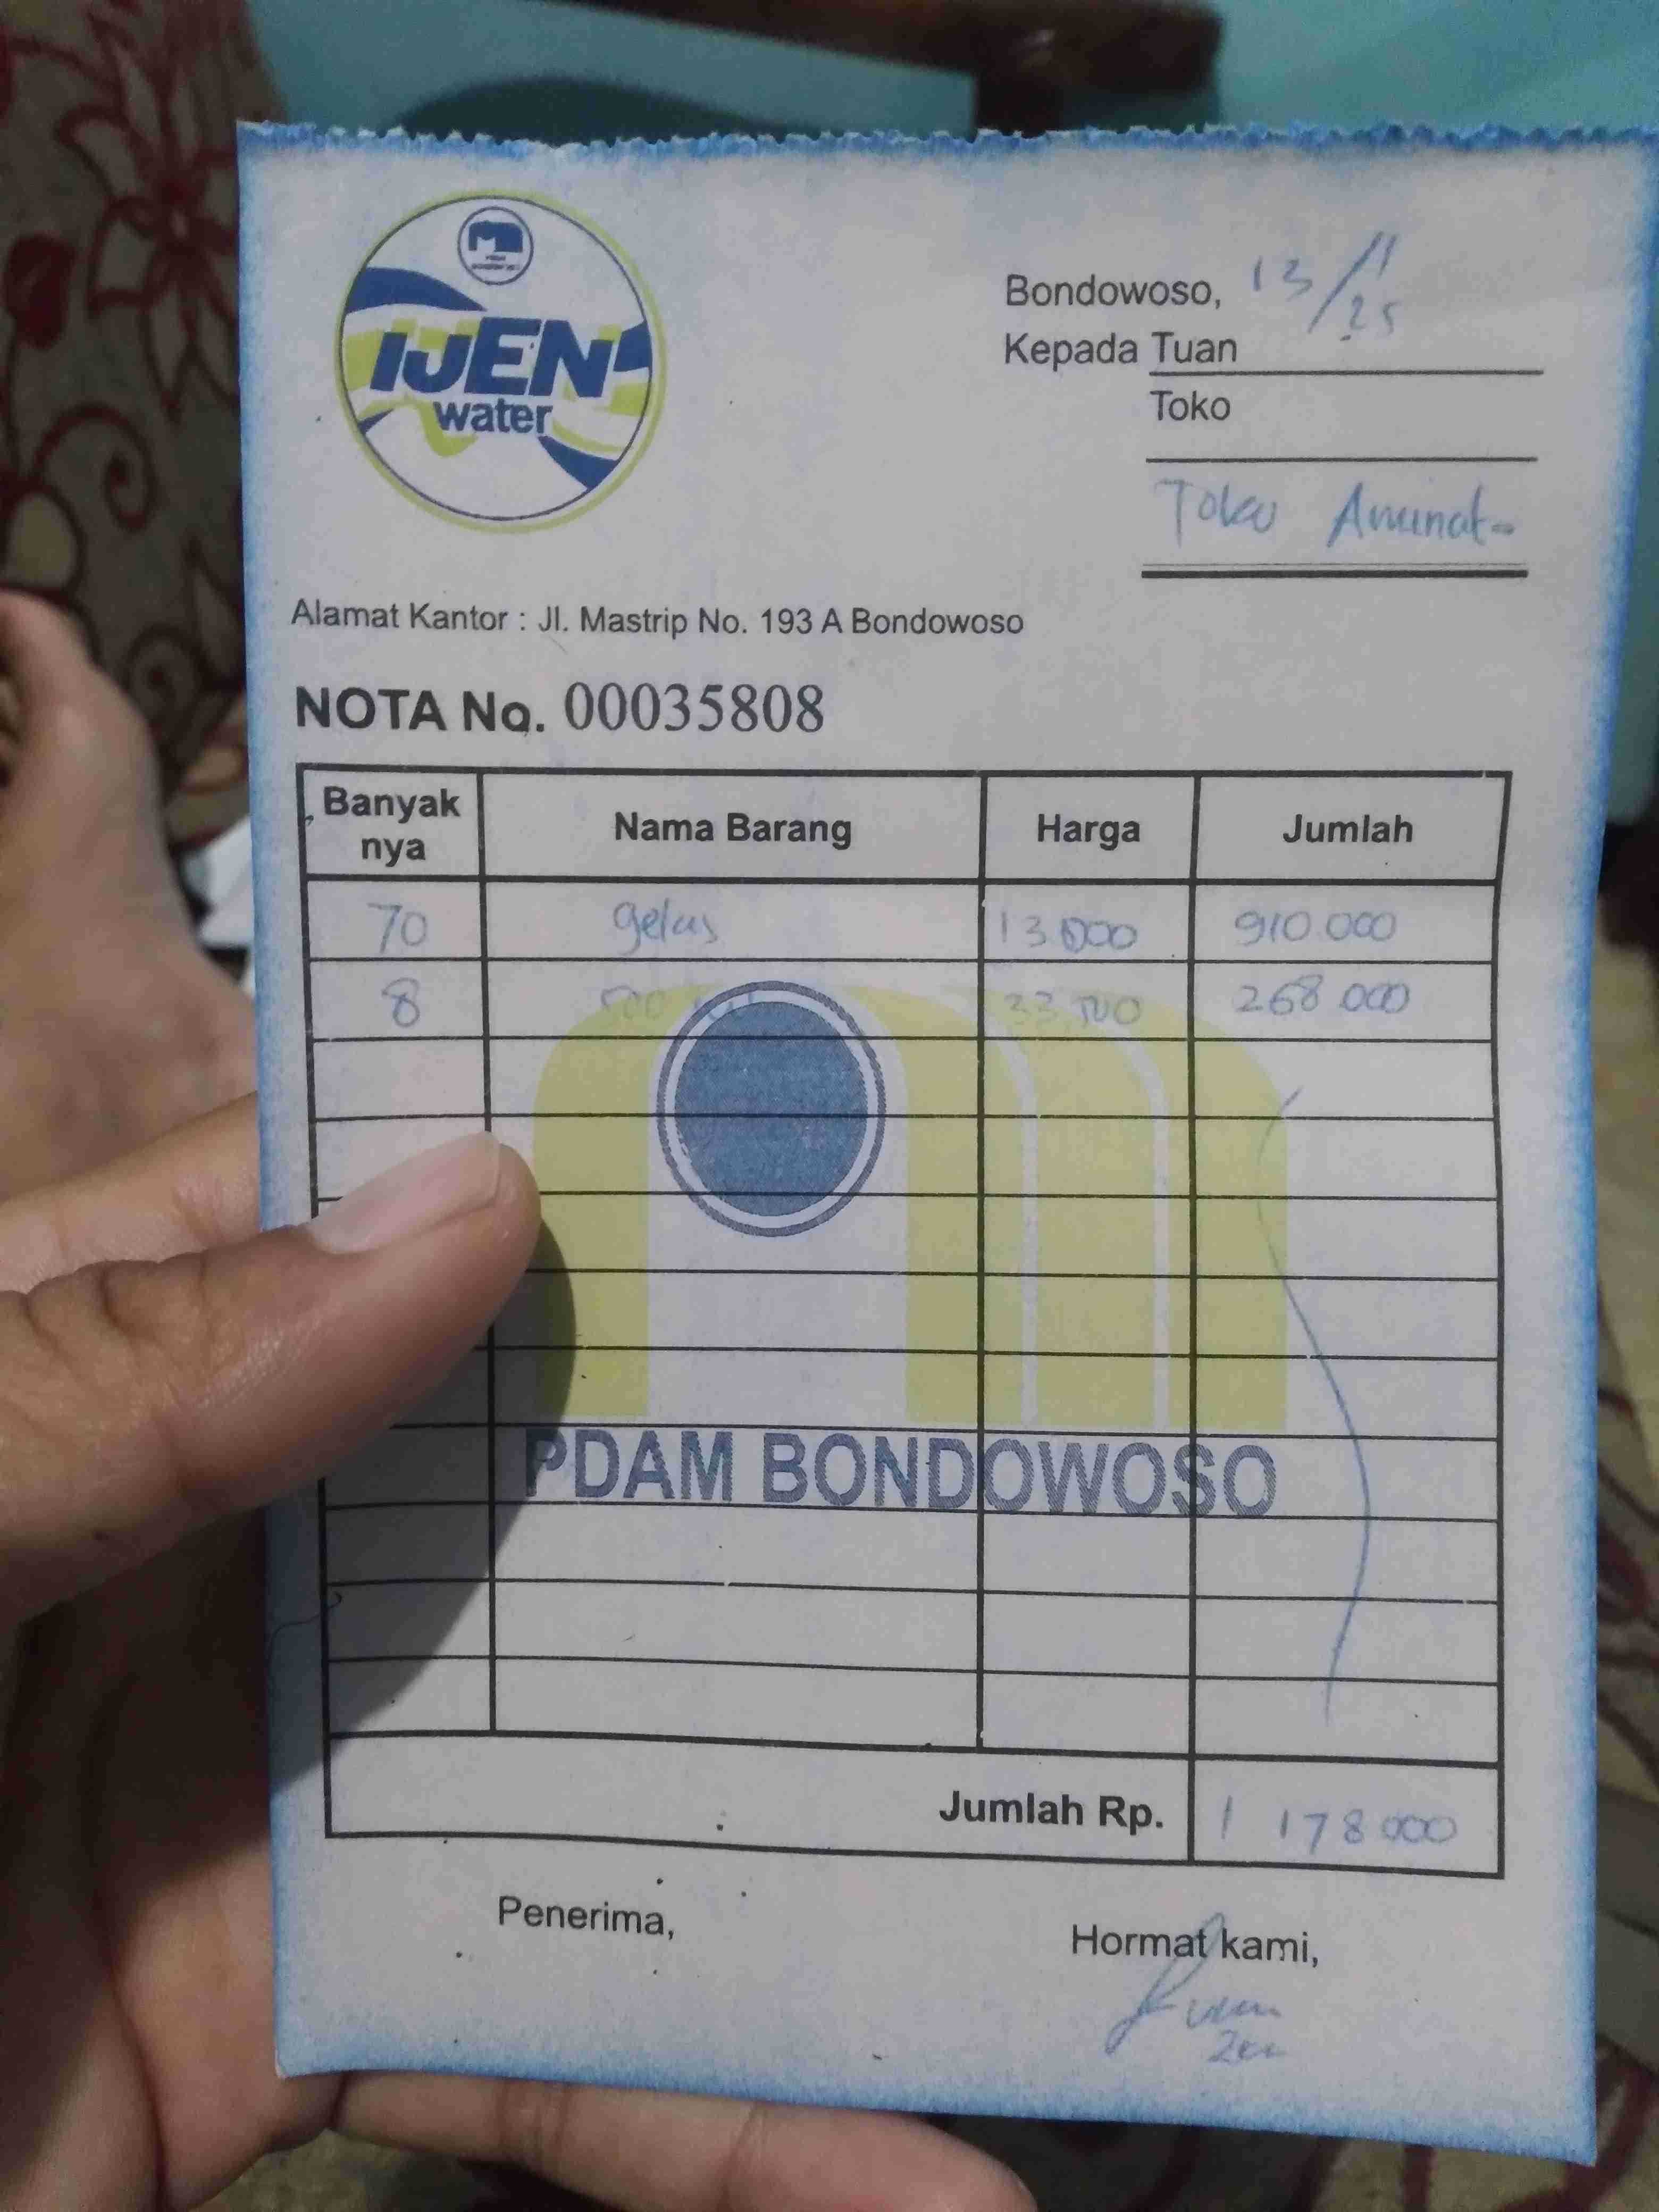 IJEN
water
Bondowoso, 13/11
25
Kepada Tuan
Toko
Toko Amanat
Alamat Kantor : Jl. Mastrip No. 193 A Bondowoso
NOTA No. 00035808
Banyak nya Nama Barang Harga Jumlah
70 gelas 13.000 910.000
8 500 ml 33.500 268.000
PDAM BONDOWOSO
Jumlah Rp. 1 178 000
Penerima,
Hormat kami,